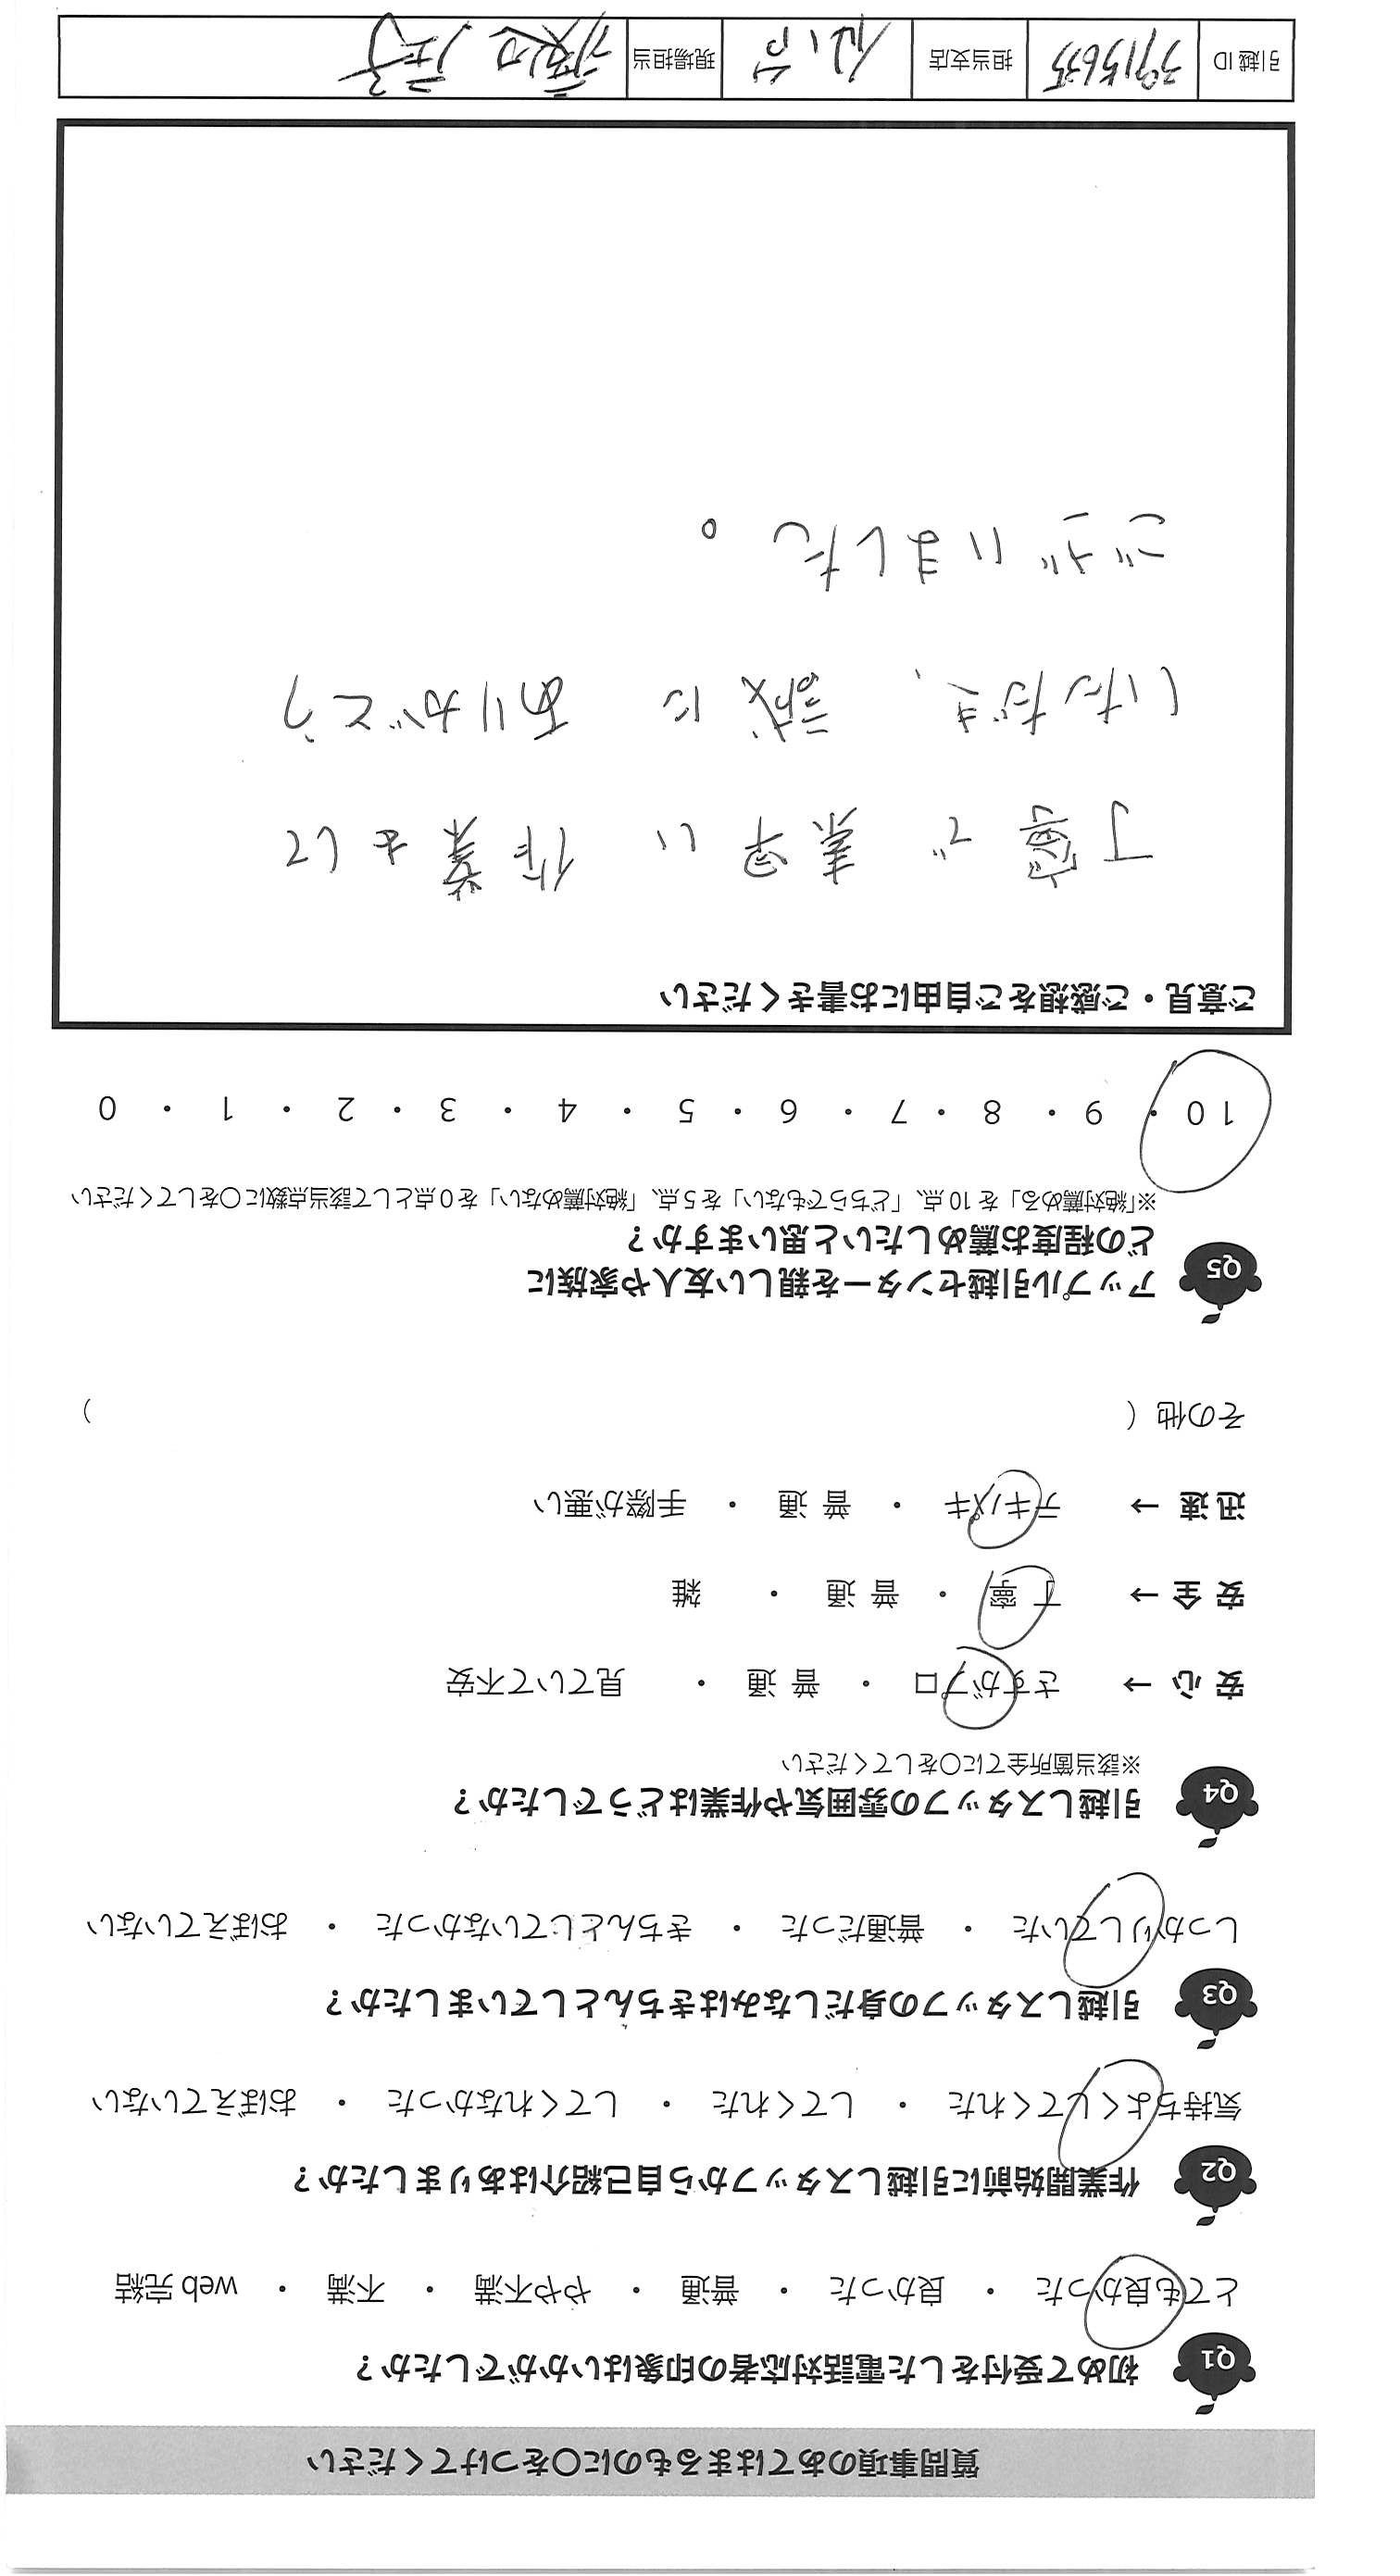 質問事項のあてはまるものに〇をつけてください
Q1 初めて受付をした電話対応者の印象はいかがでしたか？
とても良かった ・ 良かった ・ 普通 ・ やや不満 ・ 不満 ・ web 完結
Q2 作業開始前に引越しスタッフから自己紹介はありましたか？
気持ちよくしてくれた ・ してくれた ・ してくれなかった ・ おぼえていない
Q3 引越しスタッフの身だしなみはきちんとしていましたか？
しっかりしていた ・ 普通だった ・ きちんとしていなかった ・ おぼえていない
Q4 引越しスタッフの雰囲気や作業はどうでしたか？
※該当箇所全てに〇をしてください
安 心 → さすがプロ ・ 普 通 ・ 見ていて不安
安 全 → 丁 寧 ・ 普 通 ・ 雑
迅 速 → テキパキ ・ 普 通 ・ 手際が悪い
その他（ ）
Q5 アップル引越センターを親しい友人や家族に
どの程度お薦めしたいと思いますか？
※「絶対薦める」を 10 点、「どちらでもない」を 5 点、「絶対薦めない」を 0 点として該当点数に〇をしてください
10 ・ 9 ・ 8 ・ 7 ・ 6 ・ 5 ・ 4 ・ 3 ・ 2 ・ 1 ・ 0
ご意見・ご感想をご自由にお書きください
丁寧で 素早い 作業をして
いただき、誠に ありがとう
ございました。
引越 ID 3915635 担当支店 仙台 現場担当